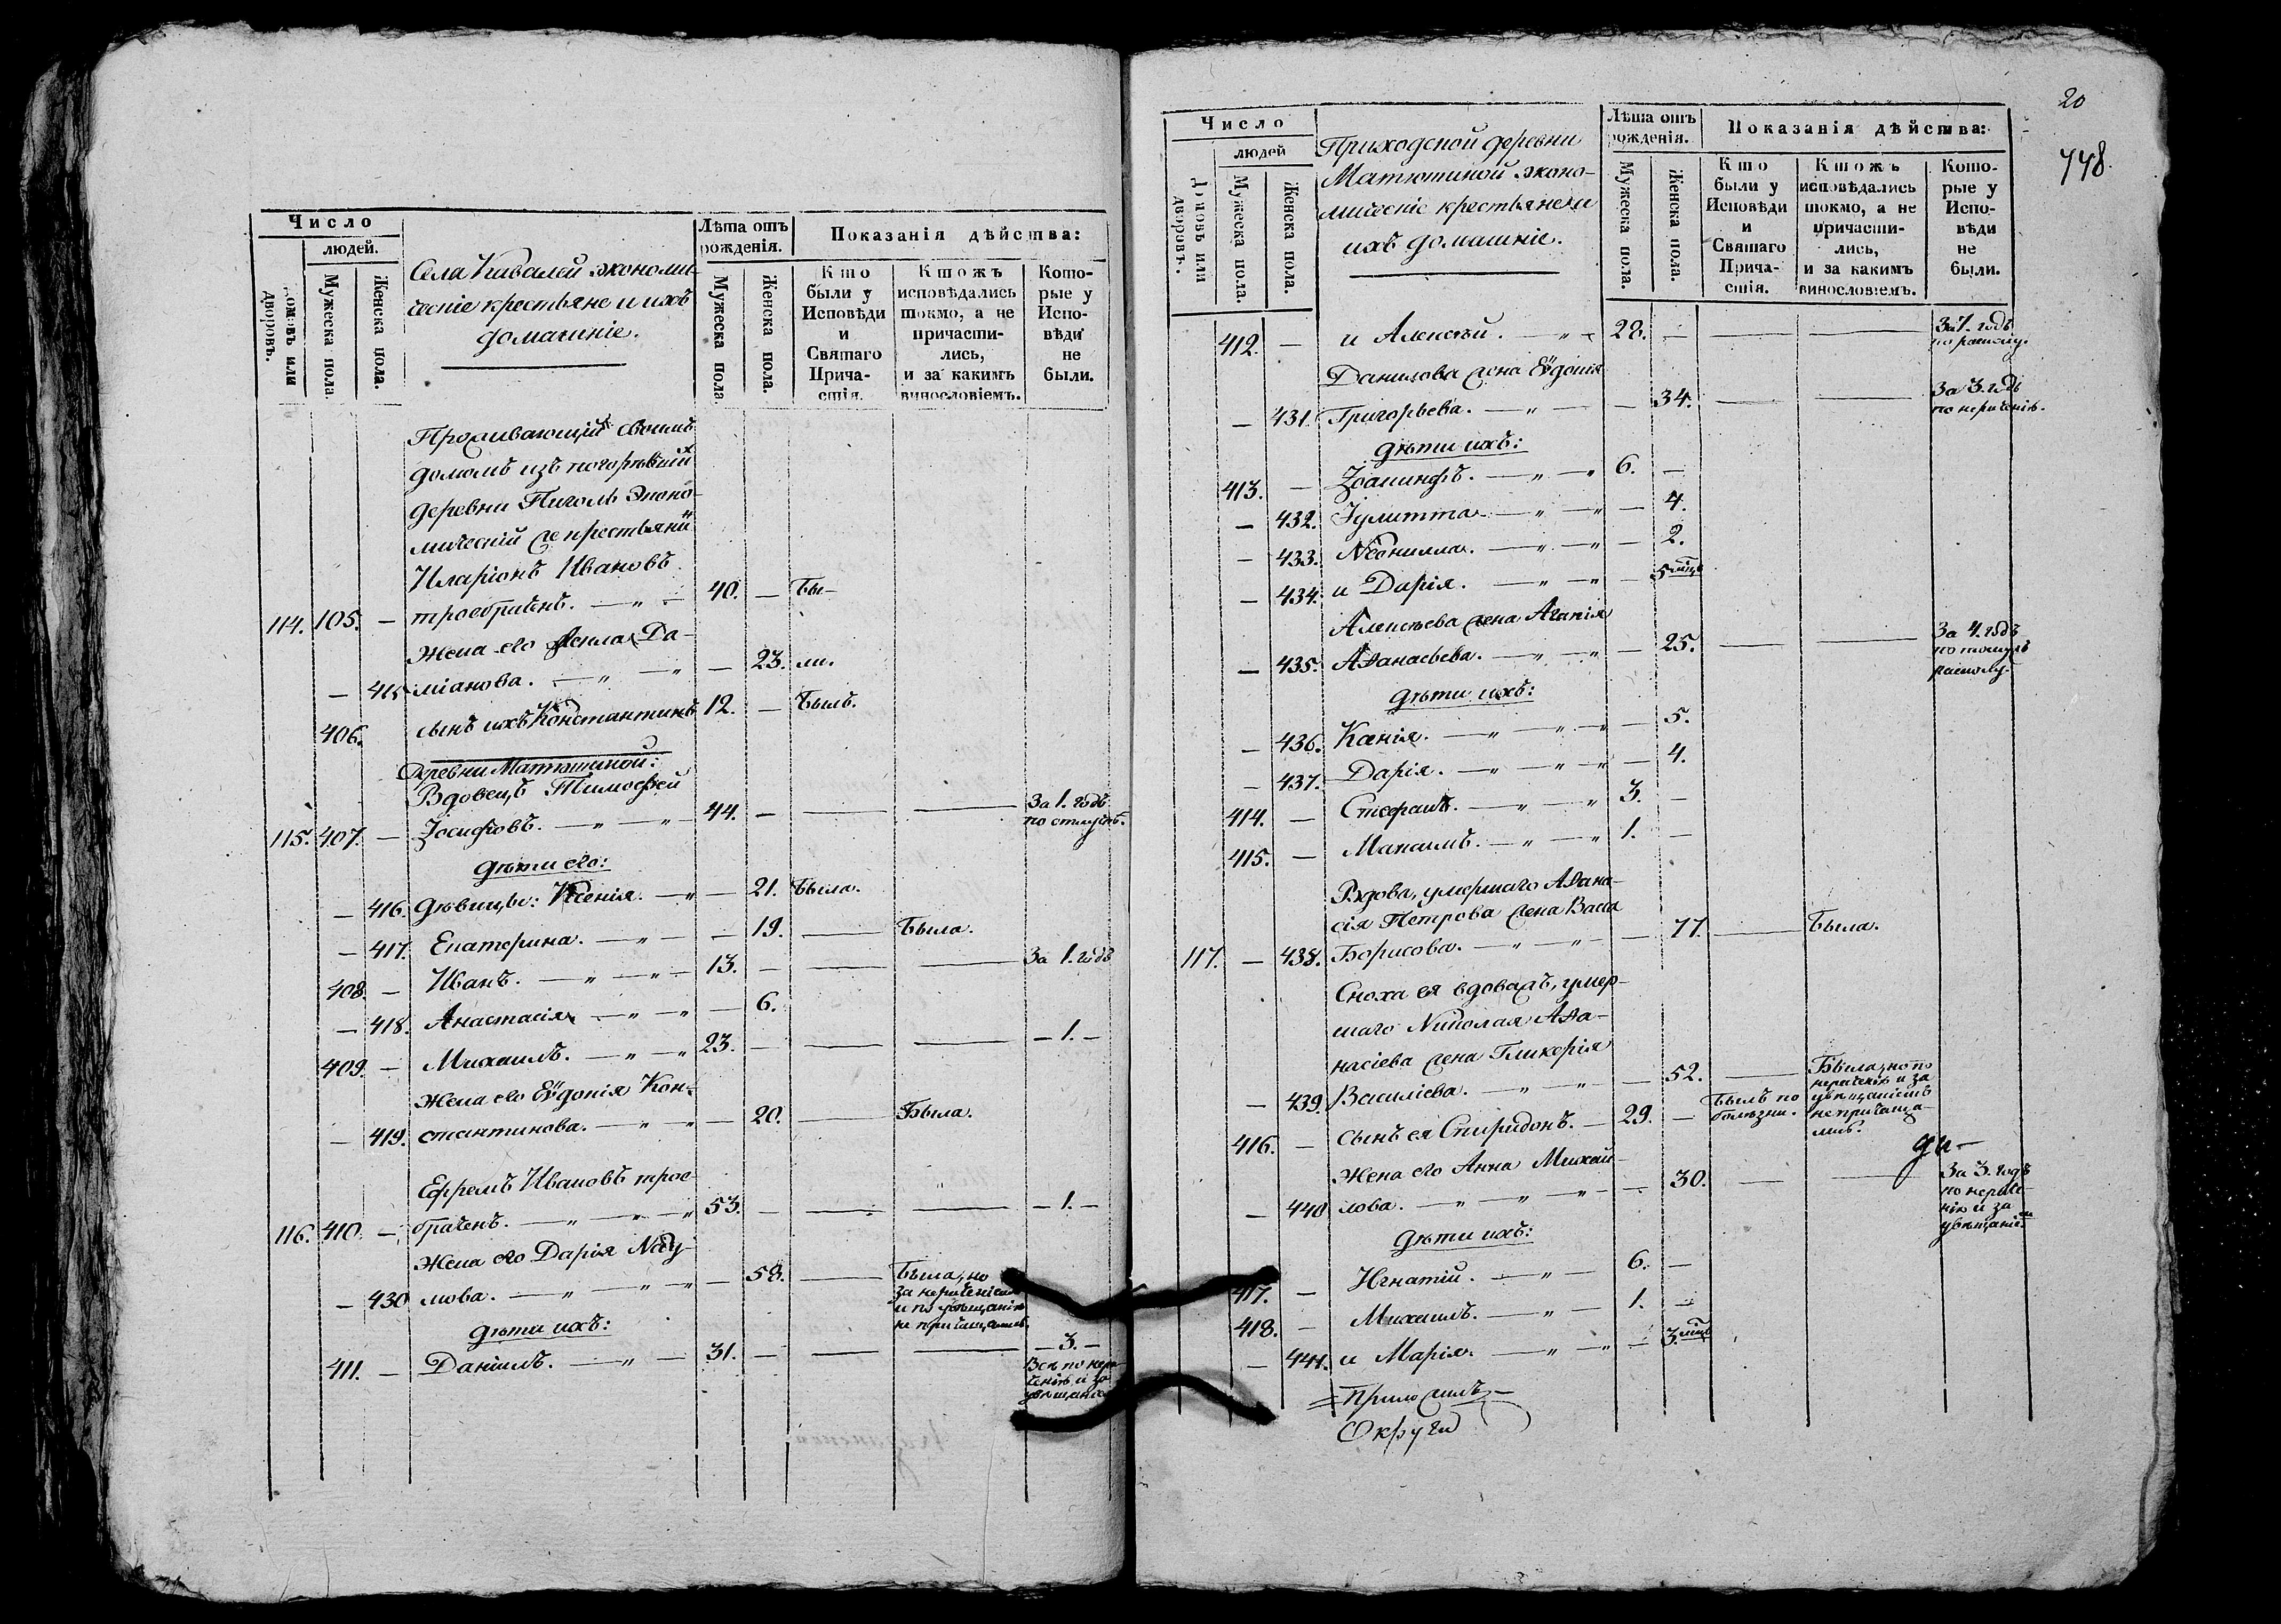 Число
людей.
Домовъ или дворовъ.
Мужеска пола.
Женска пола.
Села Кавалей экономи-
ческіе крестьяне и ихъ
домашніе.
Лѣта отъ рожденія.
Мужеска пола.
Женска пола.
Показанія дѣйства:
Кто были у Исповѣди и Святаго Прича-стія.
Ктожъ исповѣдались токмо, а не причасти-лись, и за какимъ винословіемъ.
Кото-рые у Испо-вѣди не были.
Проживающій своимъ
домомъ изъ погорѣвшій
деревни Пиголь Эконо-
мическій же крестьянин
Иларіонъ Ивановъ
114. 105. — троебраченъ. — „ — 40. — Бы-
Жена его Да-
— 415 міанова. — „ — „ — 23. ли.
406. сынъ ихъ Константинъ 12. — Былъ.
Деревни Матюшиной:
Вдовецъ Тимофей
115. 407. — Іосифовъ. — „ — „ 44. — — — За 1. годъ
по отлучкѣ.
дѣти его:
— 416. дѣвицы: Ксенія. — „ — 21. Была.
— 417. Екатерина. — „ — — 19. — Была.
408. — Иванъ. — „ — „ — 13. — — — За 1. годъ
— 418. Анастасія. — „ — „ — 6.
409. — Михаилъ. — „ — „ 23. — — — — 1. —
Жена его Евдокія Кон-
— 419. стантинова. — „ — „ — 20. — Была.
Ефремъ Ивановъ трое-
116. 410. — браченъ. — „ — „ — „ 53. — — — — 1. —
Жена его Дарія Нау-
— 430 мова. — „ — „ — „ — 58. — Была, но
за нераченіем
и по увѣщанію
не причащалась.
дѣти ихъ:
411. — Даніилъ. — „ — 31. — — — — 3. —
Всѣ по нера-
ченію и за
увѣщаніе
20
448.
Число
людей
Домовъ или дворовъ.
Мужеска пола.
Женска пола.
Приходской деревни
Матюшиной эконо-
мическіе крестьяне и
ихъ домашніе.
Лѣта отъ рожденія.
Мужеска пола.
Женска пола.
Показанія дѣйства:
Кто были у Исповѣди и Святаго Прича-стія.
Ктожъ исповѣдались токмо, а не причасти-лись, и за какимъ винословіемъ.
Кото-рые у Испо-вѣди не были.
412. — и Алексѣй. — „ — 28. — — — За 7. годъ
по расколу.
Данилова жена Евдокія
— 431. Григорьева. — „ — — 34. — — За 3. годъ
по нераченію.
дѣти ихъ:
413. — Іоакинфъ. — „ — „ 6. —
— 432. Іулитта. — „ — „ — 4.
— 433. Неонилла. — „ — „ — 2.
— 434. и Дарія. — „ — „ — 5 мцъ
Алексѣева жена Агапія
— 435. Аѳанасьева. — „ — „ — 25. — — За 4. годъ
по томужъ
расколу.
дѣти ихъ:
— 436. Ксенія. — „ — „ — „ — 5.
— 437. Дарія. — „ — „ — „ — 4.
414. — Стефанъ. — „ — „ 3. —
415. — Максимъ. — „ — „ 1. —
Вдова, умершаго Аѳана-
сія Петрова жена Васса
117. — 438. Борисова. — „ — „ — 77. — Была.
Сноха ея вдова жъ, умер-
шаго Николая Аѳа-
насіева жена Гликерія
— 439. Василіева. — „ — „ — 52. — Была, но по
нераченію и за
увѣщаніемъ
не причаща-
лась.
416. — Сынъ ея Спиридонъ. — 29. — Былъ по
болѣзни.
Жена его Анна Михай-
— 440 лова. — „ — „ — „ — 30. — — За 3. годъ
по нераче-
нію и за
увѣщаніем
дѣти ихъ:
417. — Игнатій. — „ — 6. —
418. — Михаилъ. — „ — 1. —
— 441. и Марія. — „ — „ — 3. мцъ
Округи